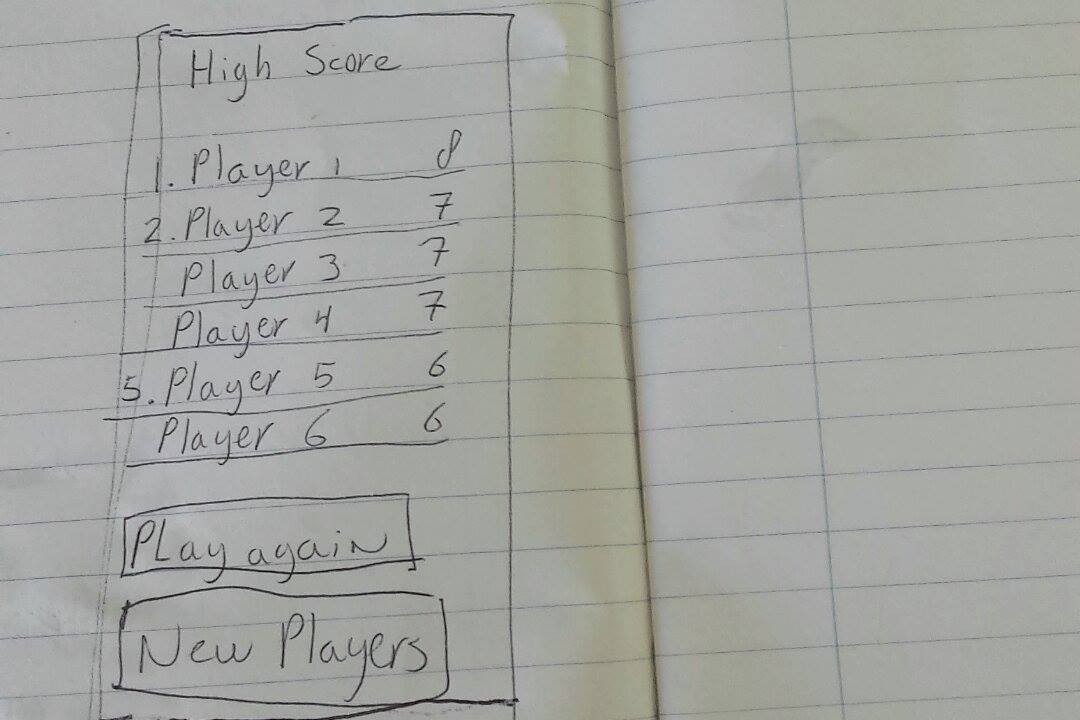 High Score
1. Player 1 8
2. Player 2 7
Player 3 7
Player 4 7
5. Player 5 6
Player 6 6
PLay again
New Players